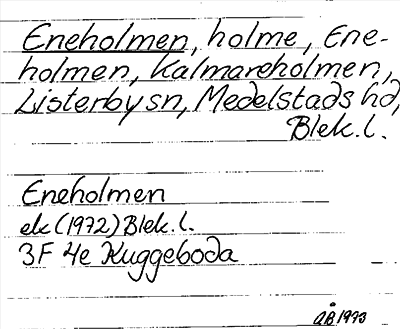 Eneholmen, holme, Ene-
holmen, Kalmareholmen,
Listerby sn, Medelstads hd,
Blek. l.
Eneholmen
ek (1972) Blek. l.
3F 4e Kuggeboda
åB 1993